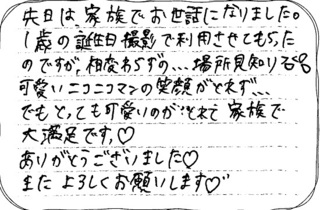 先日は、家族でお世話になりました。
1歳の誕生日撮影で利用させてもらった
のですが、相変わらずの…場所見知り
可愛いニコニコマンの笑顔がとれず…
でもとっても可愛いのがとれて家族で
大満足です♡
ありがとうございました♡
またよろしくお願いします♡